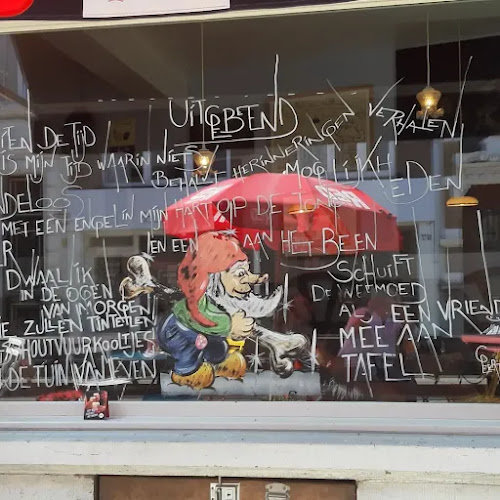 UITGEBEEND
DE TIJD
IS MIJN TIJD WAARIN NIETS
BEHALVE HERINNERINGEN VERHALEN
MOGELIJKHEDEN
MET EEN ENGEL IN MIJN HART OP DE TONG
EN EEN AAN HET BEEN
DWAAL IK
IN DE OGEN
VAN MORGEN
ZULLEN TINTELEN
HOUTVUURKOOLTJES
DE TUIN VAN EVEN
SCHUIFT
DE WEEMOED
ALS EEN VRIEND
MEE AAN
TAFEL